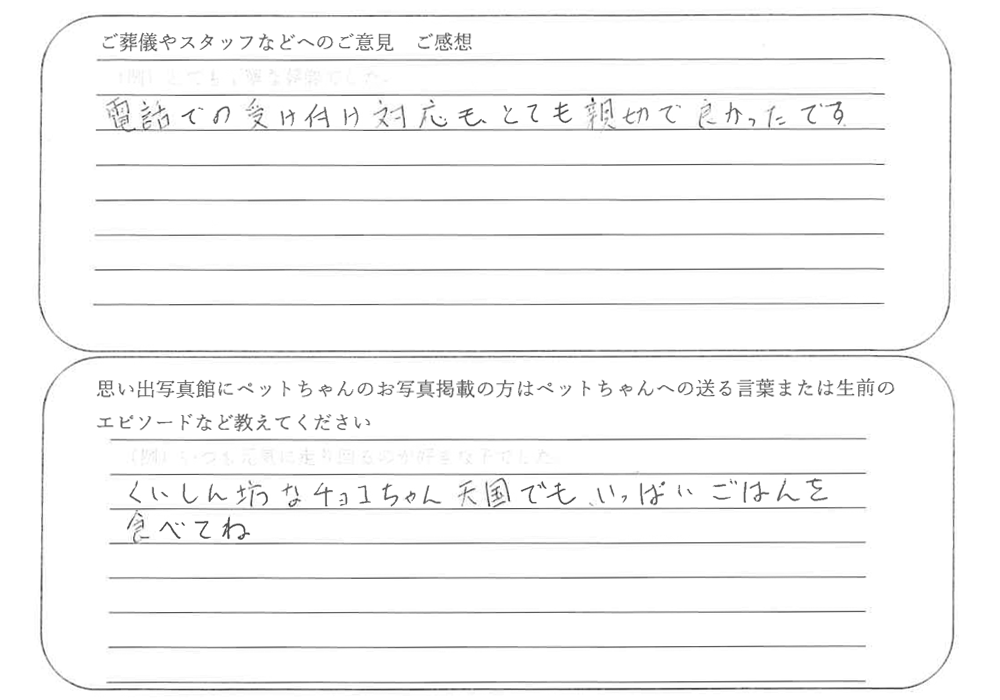 ご葬儀やスタッフなどへのご意見　ご感想
電話での受け付け対応も、とても親切で良かったです
思い出写真館にペットちゃんのお写真掲載の方はペットちゃんへの送る言葉または生前の
エピソードなど教えてください
（例）いつも元気に走り回るのが好きな子でした
くいしん坊なチョコちゃん天国でも、いっぱいごはんを
食べてね